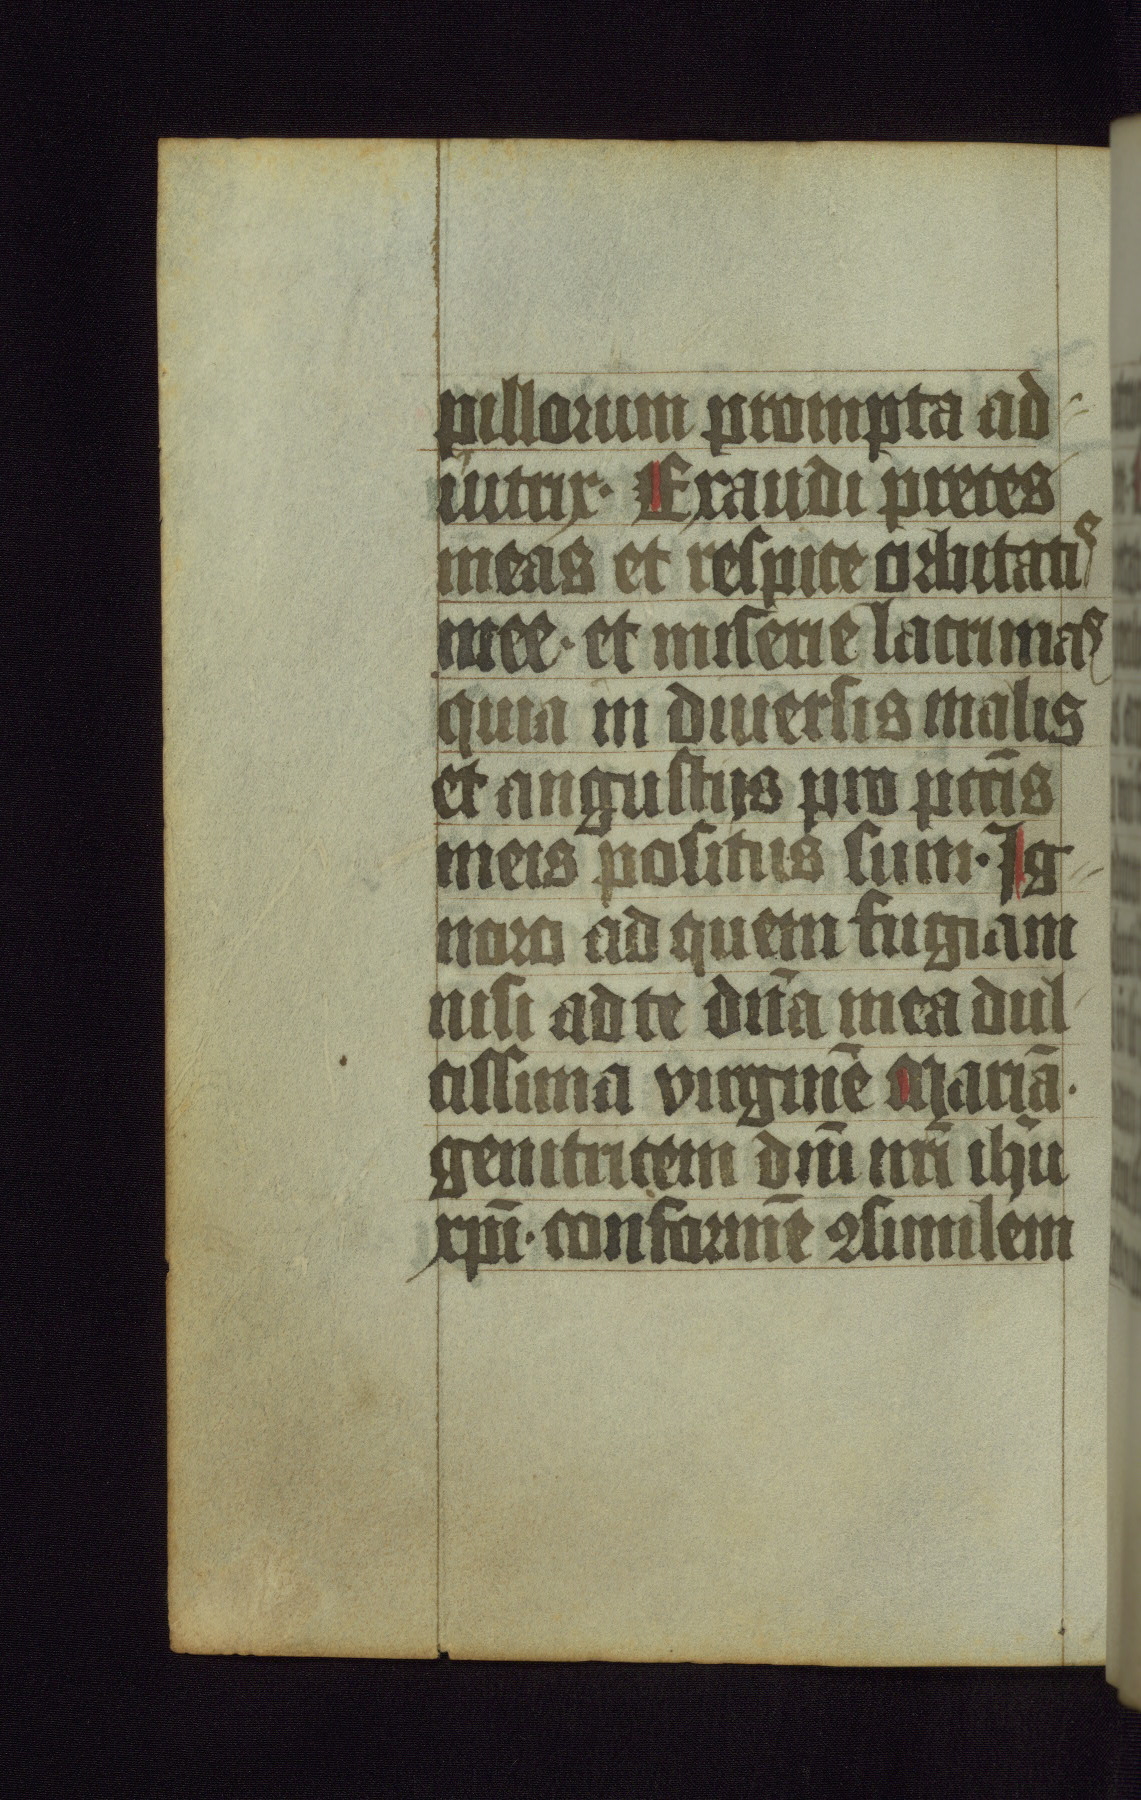 pillorum prompta ad
iutrix. Exaudi preces
meas et respice orbitatis
mee. et miserie lacrimas
quia in diuersis malis
et angustijs pro pctı̄s
meis positus sum. Ig
noro ad quem fugiam
nisi ad te dn̄a mea dul
cissima virginē Mariā.
genitricem dnı̄ nrı̄ ihū
xpı̄. conformē ꝯsimilem